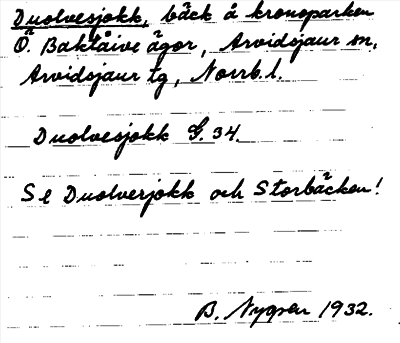 Duolvesjokk, bäck å kronoparken
Ö. Baktåive ägor, Arvidsjaur sn,
Arvidsjaur tg, Norrb. l.
Duolvesjokk G. 34.
Se Duolverjokk och Storbäcken!
B. Nygren 1932.